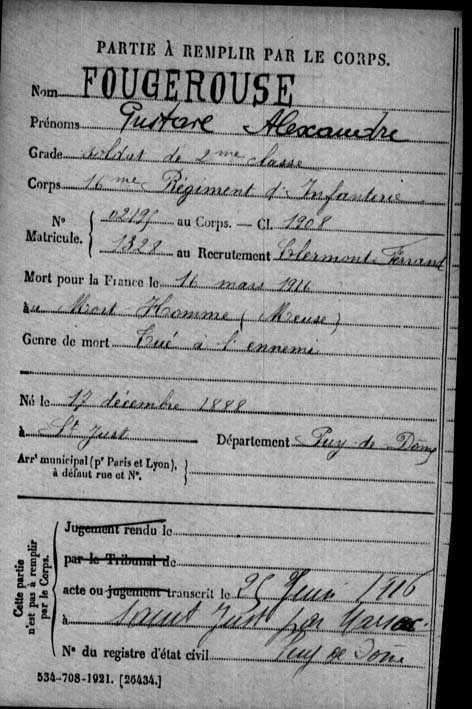 PARTIE À REMPLIR PAR LE CORPS.
Nom FOUGEROUSE
Prénoms Gustave Alexandre
Grade soldat de 2me classe
Corps 16me Régiment d'Infanterie
N° Matricule. { 02195 au Corps. — Cl. 1908
1328 au Recrutement Clermont-Ferrand
Mort pour la France le 16 mars 1916
au Mort Homme (Meuse)
Genre de mort Tué à l'ennemi
Né le 17 décembre 1888
à St Just Département Puy-de-Dôme
Arrt municipal (pr Paris et Lyon), à défaut rue et N°. }
Cette partie n'est pas à remplir par le Corps.
Jugement rendu le
par le Tribunal de
acte ou jugement transcrit le 25 Juin 1916
à Saint Just par
N° du registre d'état civil Puy de Dôme
534-708-1921. [26434.]